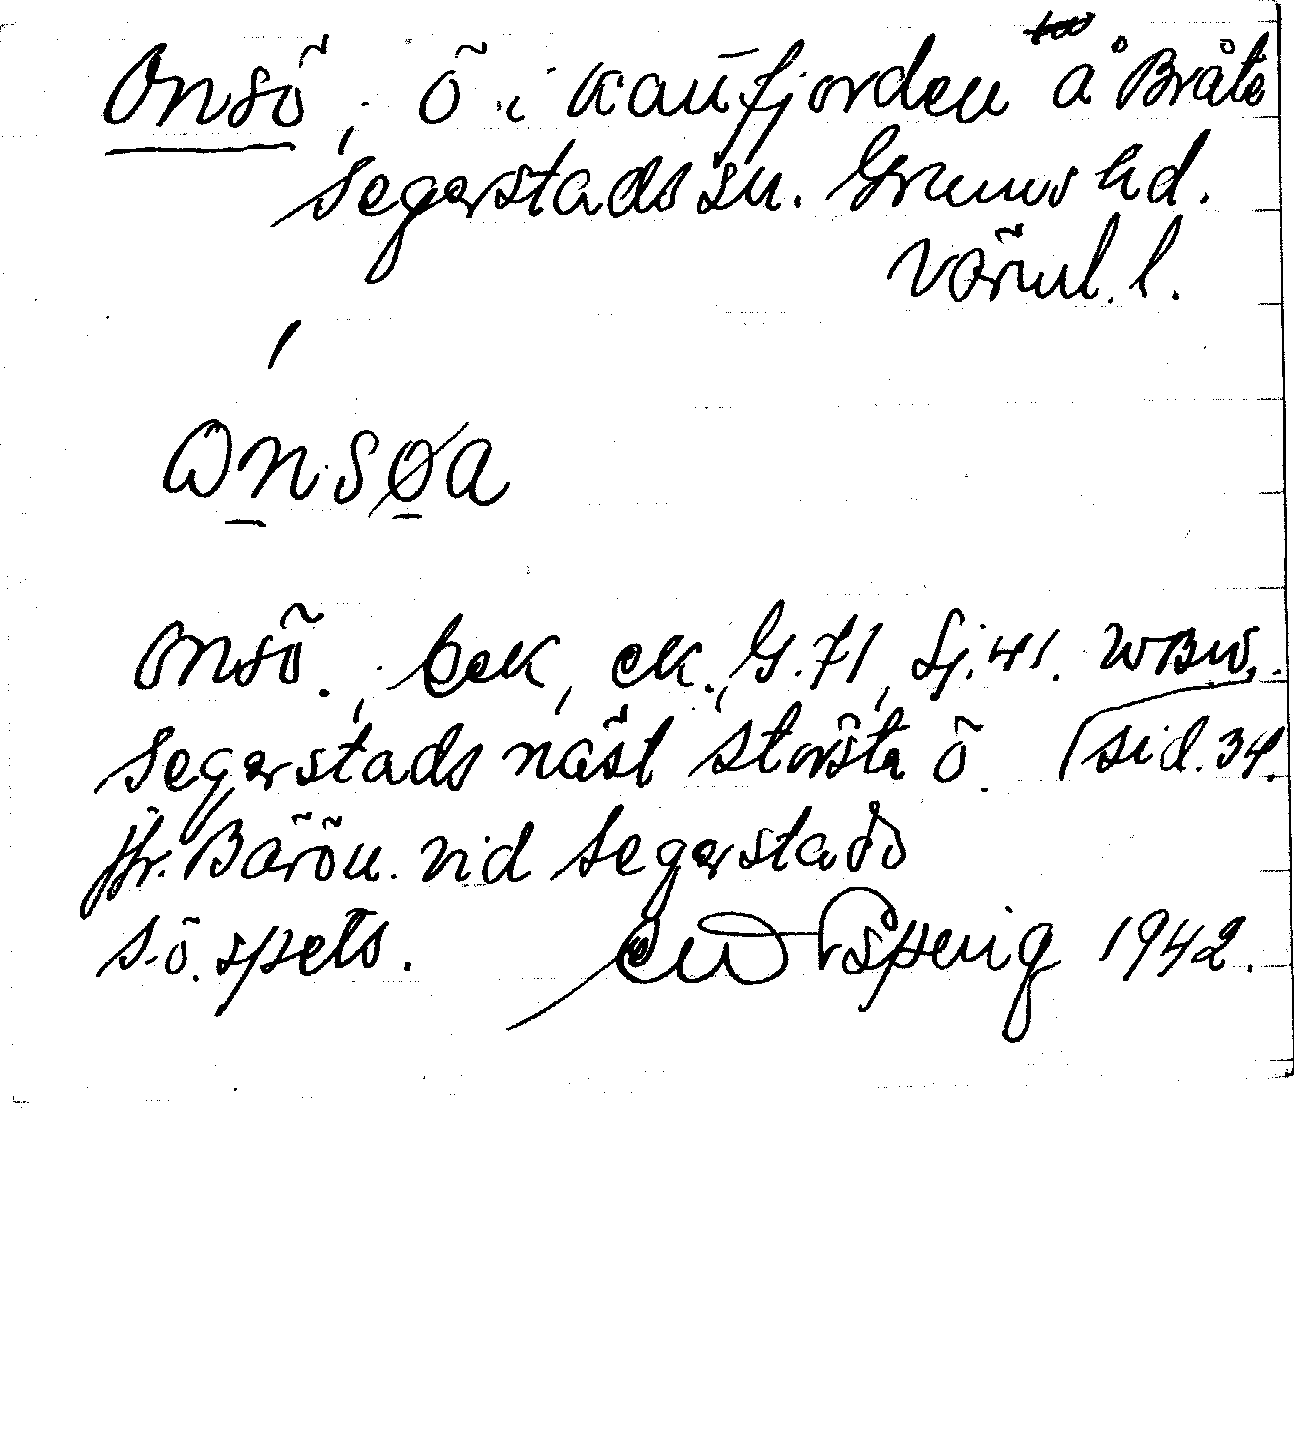 Onsö, ö i Kaufjorden å Bråte
Segerstads sn. Grums hd.
Värml. l.
ωnsøa
Onsö., bek, ek., G. 71, Sj. 41. WBW.
Segerstads näst största ö. (sid. 34.
Jfr. Bärön. vid Segerstads
s.ö. spets. Sperig 1942.